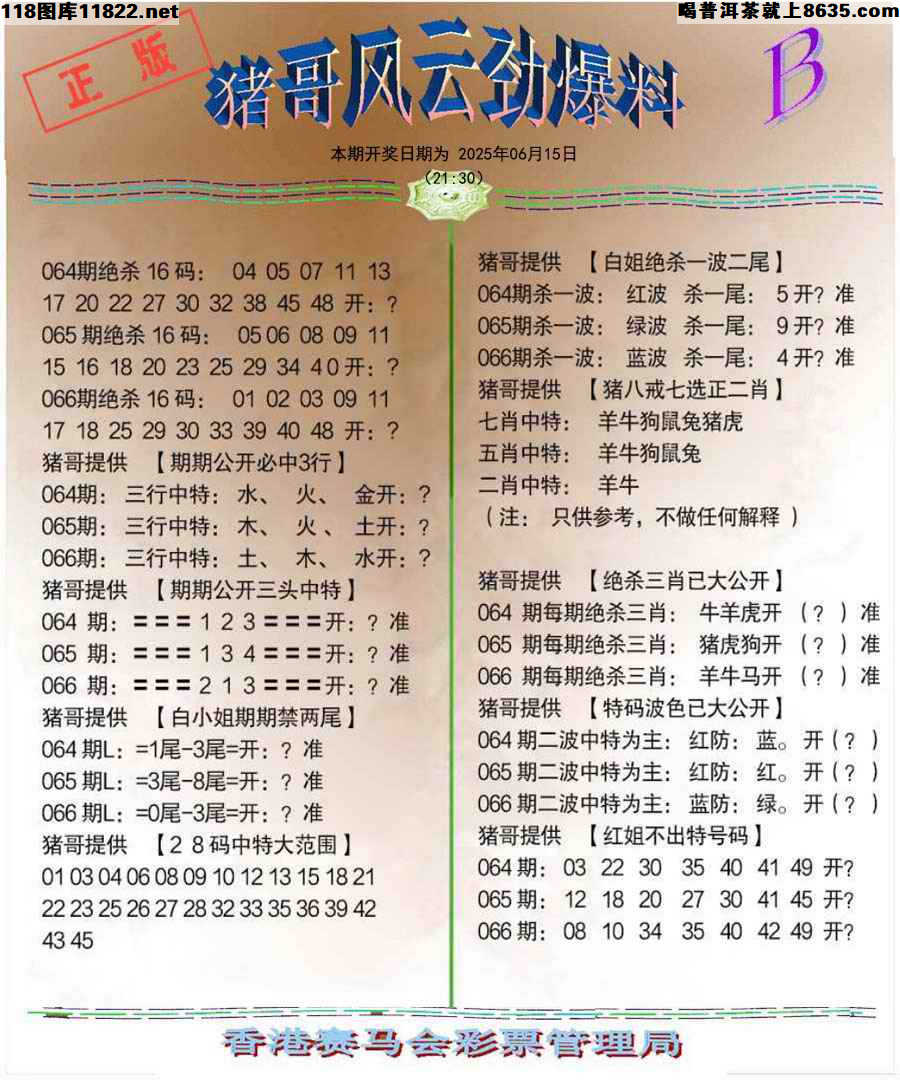 118图库11822.net
喝普洱茶就上8635.com
正版
猪哥风云劲爆料
B
本期开奖日期为 2025年06月15日
(21:30)
064期绝杀16码： 04 05 07 11 13
17 20 22 27 30 32 38 45 48 开：?
065期绝杀16码： 05 06 08 09 11
15 16 18 20 23 25 29 34 40 开：?
066期绝杀16码： 01 02 03 09 11
17 18 25 29 30 33 39 40 48 开：?
猪哥提供 【期期公开必中3行】
064期： 三行中特：水、 火、 金开：?
065期： 三行中特：木、 火、 土开：?
066期： 三行中特：土、 木、 水开：?
猪哥提供 【期期公开三头中特】
064 期：＝＝＝1 2 3＝＝＝开：? 准
065 期：＝＝＝1 3 4＝＝＝开：? 准
066 期：＝＝＝2 1 3＝＝＝开：? 准
猪哥提供 【白小姐期期禁两尾】
064期L：=1尾-3尾=开：? 准
065期L：=3尾-8尾=开：? 准
066期L：=0尾-3尾=开：? 准
猪哥提供 【28码中特大范围】
01 03 04 06 08 09 10 12 13 15 18 21
22 23 25 26 27 28 32 33 35 36 39 42
43 45
猪哥提供 【白姐绝杀一波二尾】
064期杀一波： 红波 杀一尾： 5开? 准
065期杀一波： 绿波 杀一尾： 9开? 准
066期杀一波： 蓝波 杀一尾： 4开? 准
猪哥提供 【猪八戒七选正二肖】
七肖中特： 羊牛狗鼠兔猪虎
五肖中特： 羊牛狗鼠兔
二肖中特： 羊牛
（注： 只供参考，不做任何解释 ）
猪哥提供 【绝杀三肖已大公开】
064 期每期绝杀三肖： 牛羊虎开 （? ）准
065 期每期绝杀三肖： 猪虎狗开 （? ）准
066 期每期绝杀三肖： 羊牛马开 （? ）准
猪哥提供 【特码波色已大公开】
064期二波中特为主：红防：蓝。开(? )
065期二波中特为主：红防：红。开(? )
066期二波中特为主：蓝防：绿。开(? )
猪哥提供 【红姐不出特号码】
064期： 03 22 30 35 40 41 49 开?
065期： 12 18 20 27 30 41 45 开?
066期： 08 10 34 35 40 42 49 开?
香港赛马会彩票管理局